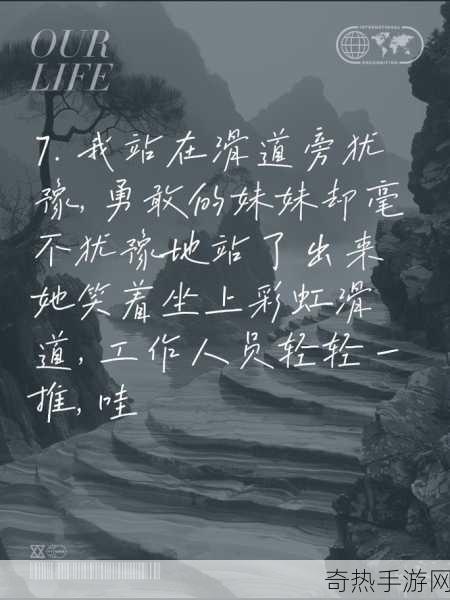 OUR
LIFE
INTERNATIONAL
7. 我站在滑道旁犹
豫, 勇敢的妹妹却毫
不犹豫地站了出来
她笑着坐上彩虹滑
道, 工作人员轻轻一
推, 哇
奇热手游网